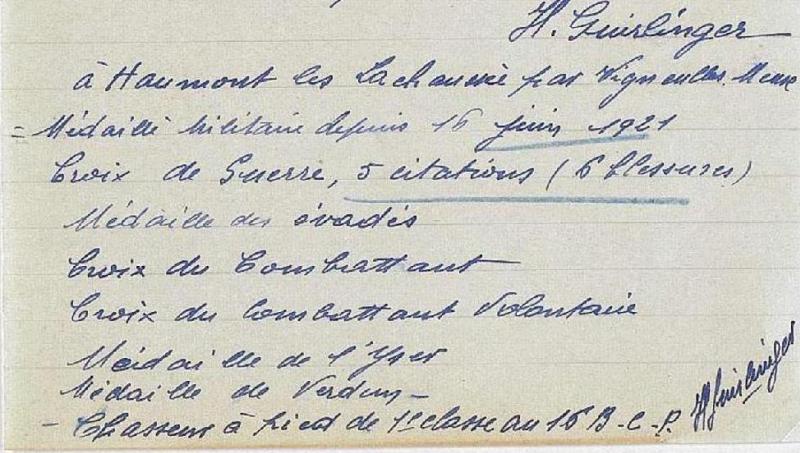 H. Guirlinger
à Haumont les Lachaussée par Vigneulles. Meuse
= Médaille militaire depuis 16 juin 1921
Croix de Guerre, 5 citations (6 blessures)
Médaille des évadés
Croix du Combattant
Croix du Combattant Volontaire
Médaille de l'Yser
Médaille de Verdun -
- Chasseur à pied de 1e classe au 16 B-C-P.
H Guirlinger